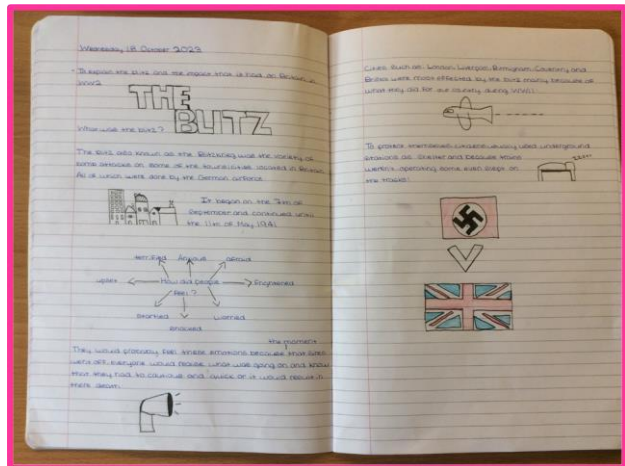 Wednesday 18 October 2023
• To explain the blitz and the impact that it had on Britain in
WW2
THE
BLITZ
What was the blitz?
The blitz also known as the Blitzkrieg was the variety of
some attacks on some of the towns/cities located in Britain.
All of which were done by the German airforce.
It began on the 7th of
September and continued until
the 11th of May 1941
terrified Anxious afraid
upset How did people frightened
feel?
Startled worried
shocked
the moment
They would probably feel these emotions because that sirens
went off everyone would realise what was going on and know
that they had to cautious and quick or it would result in
there death.
Cities such as: London, Liverpool, Birmingham, Coventry and
Bristol were most effected by the blitz mainly because of
what they did for the country during WW1!
To protect themselves usually used underground
stations as shelter and because trains
weren't operating some even slept on
the tracks!